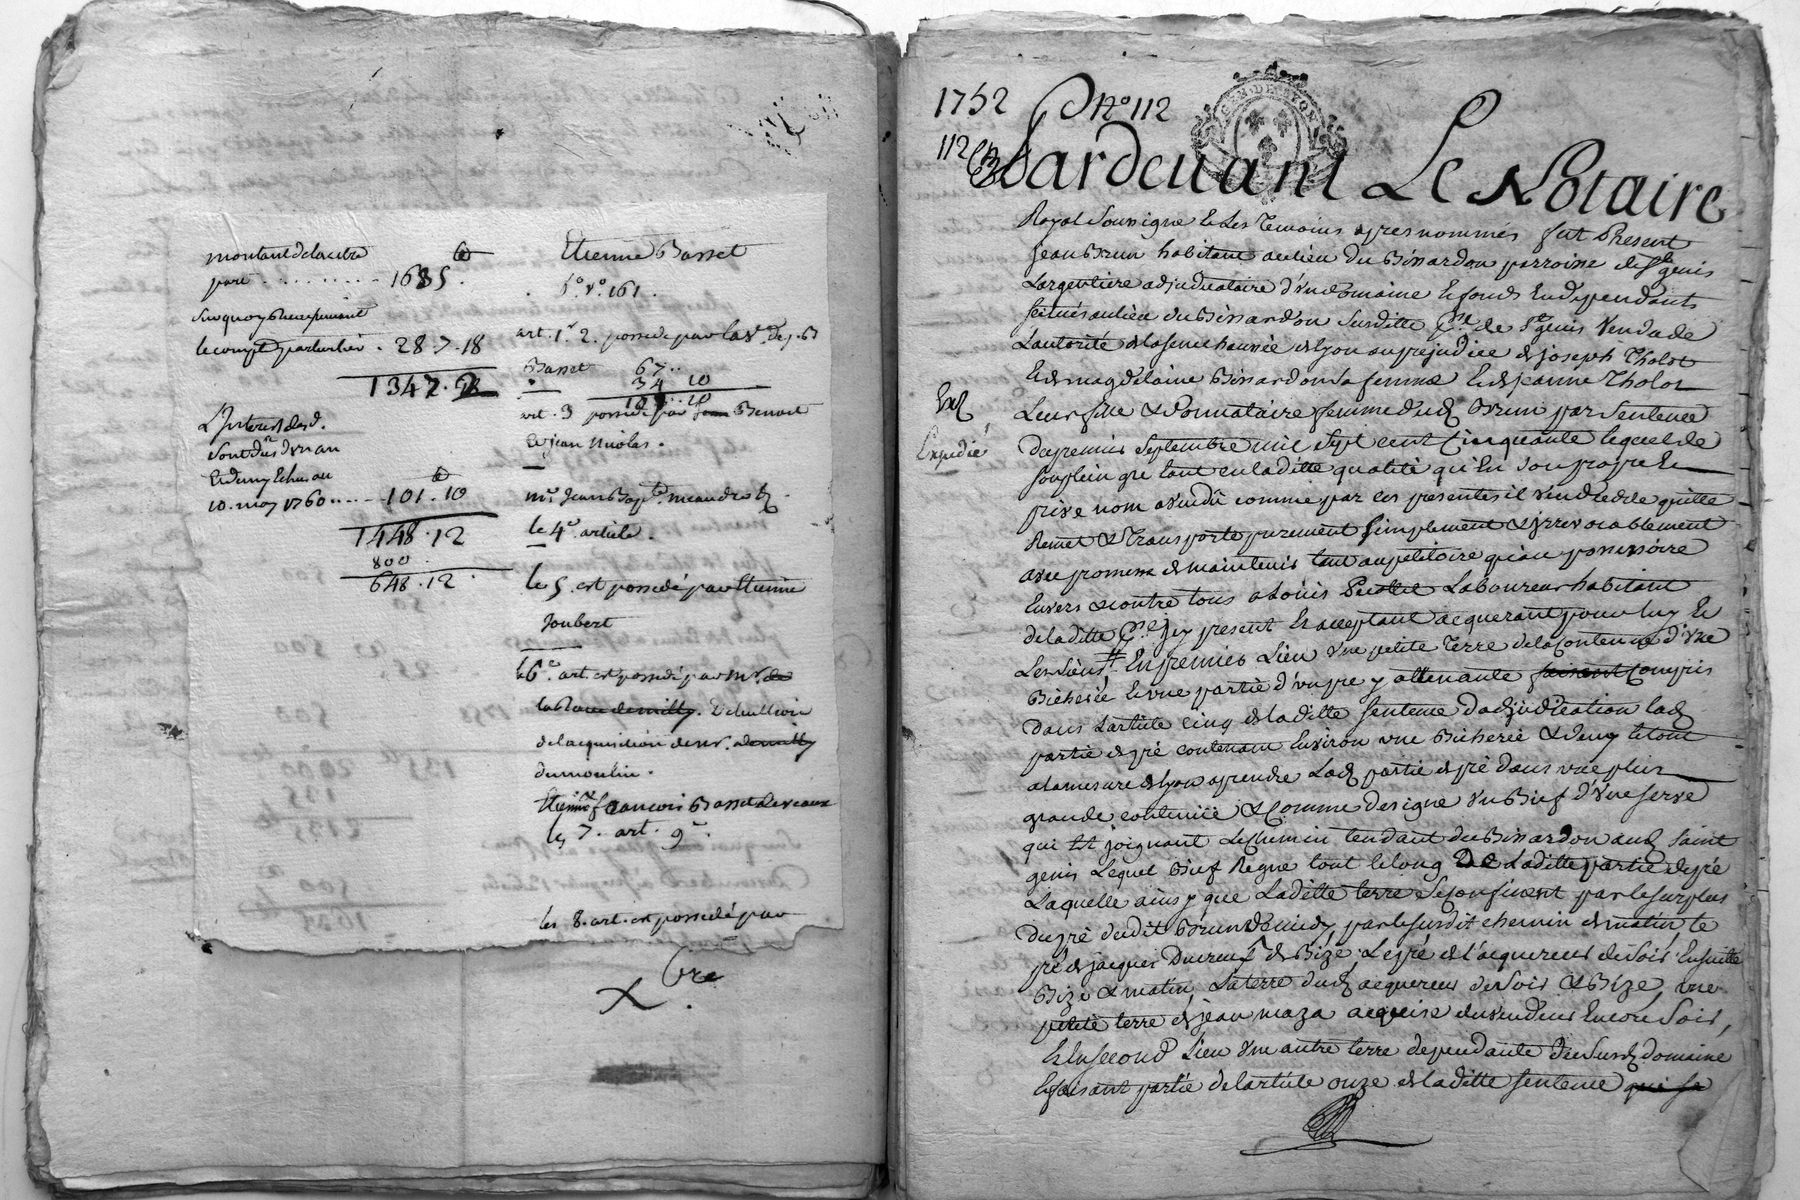 montant de lautre
part . . . . . . . . . 1635 .
Sur quoy
le compte particulier . 28 . 7 . 18
1347 . 2
L'Interest
Sont dus d'un an
et demy Echu au
10. may 1760 . . . . . 101 . 10
1448 . 12
800
648 . 12 .
Etienne Basset
f.° v.° 161 .
art . 1.r 2 . possedé par la v.e
Basset 67 ..
34 .. 10
101 .. 10
art . 3 possedé par Jean Benoit
et jean Nicolas .
mr. Jean Bap.te
le 4.e article .
le 5 . est possedé par Etienne
Joubert
le 6.e art. est possedé par mr. de
la . Detenteur
de lacquisition de mr.
dumoulin .
Etienne francois Basset
les 7 . art . 9.e
les 8 . art . est possedé par
1752 N.° 112
112
GEN · DE LYON
Pardevant Le Notaire
Royal Soussigné & Les Temoins apres nommés fut Present
Jean Brun habitant au lieu du Bissardon parroisse de St. genis
Largentiere adjudicataire d'un Domaine & fonds En dependants
situés au lieu du Bissardon Susditte P.sse de St. genis Vendu de
L'autorité de la senechaussée de lyon au prejudice de joseph Tholot
& de magdelaine Bissardon sa femme & de jeanne Tholot
Leur fille & Donnataire femme dud. Brun par Sentence
du premier Septembre mil Sept cent Cinquante lequel de
son plein gré tant en laditte qualité qu'En son propre &
privé nom a vendu comme par ces presentes il vend cede quitte
Remet & Transporte purement Simplement & irrevocablement
avec promesse de maintenir tant au petitoire qu'au possessoire
Envers & contre tous a Loüis Laboureur habitant
de laditte P.sse jcy present & acceptant acquerant pour luy &
Les Siens, En premier Lieu une petite Terre de la Contenue d'une
Bicherée & une partie d'un pre y attenante faisant Compris
Dans Larticle cinq de laditte Sentence d'adjudication lad.
partie de pré contenant Environ une Bicherée & demy le tout
a la mesure de lyon a prendre Lad. partie de pré dans une plus
grande contenüe & Comme designe un Bief d'une serve
qui Est joignant Le Chemin tendant du Bissardon aud. Saint
genis Lequel Bief Regne tout le long De Laditte partie de pré
Laquelle ainsy que Laditte terre Se confinent par le surplus
du pré dudit Brun de midy, par le susdit chemin de matin, le
pré de jacques Ducreux de Bize, Le pré de l'acquereur de Soir Ensuitte
Bize & matin, La terre dud. acquereur de Soir & Bize, une
petite terre de jean maza acquise du vendeur Encore Soir,
& En Second Lieu une autre terre dependante du Susd. domaine
& faisant partie de larticle onze de laditte Sentence qui se
Exp
Expedié